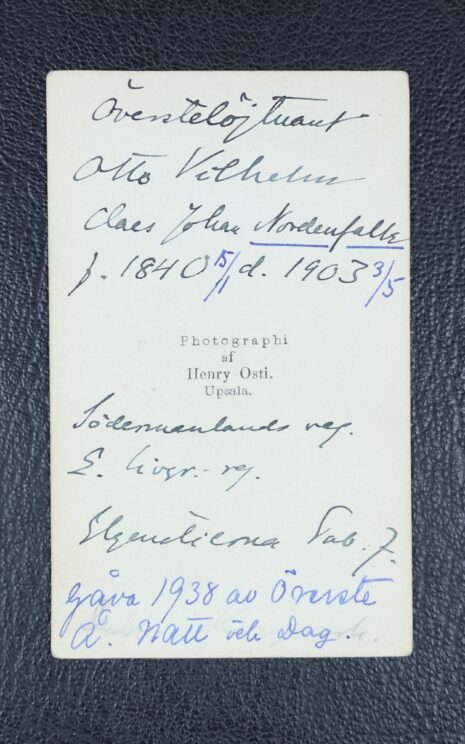 Överstelöjtnant
Otto Vilhelm
Claes Johan Nordenfalk
f. 1840 15/1 d. 1903 3/5
Photographi
af
Henry Osti.
Upsala.
Södermanlands reg.
2. livgr.-reg.
Elgenstierna Tab. 7.
Gåva 1938 av Överste
Å. Natt och Dag.